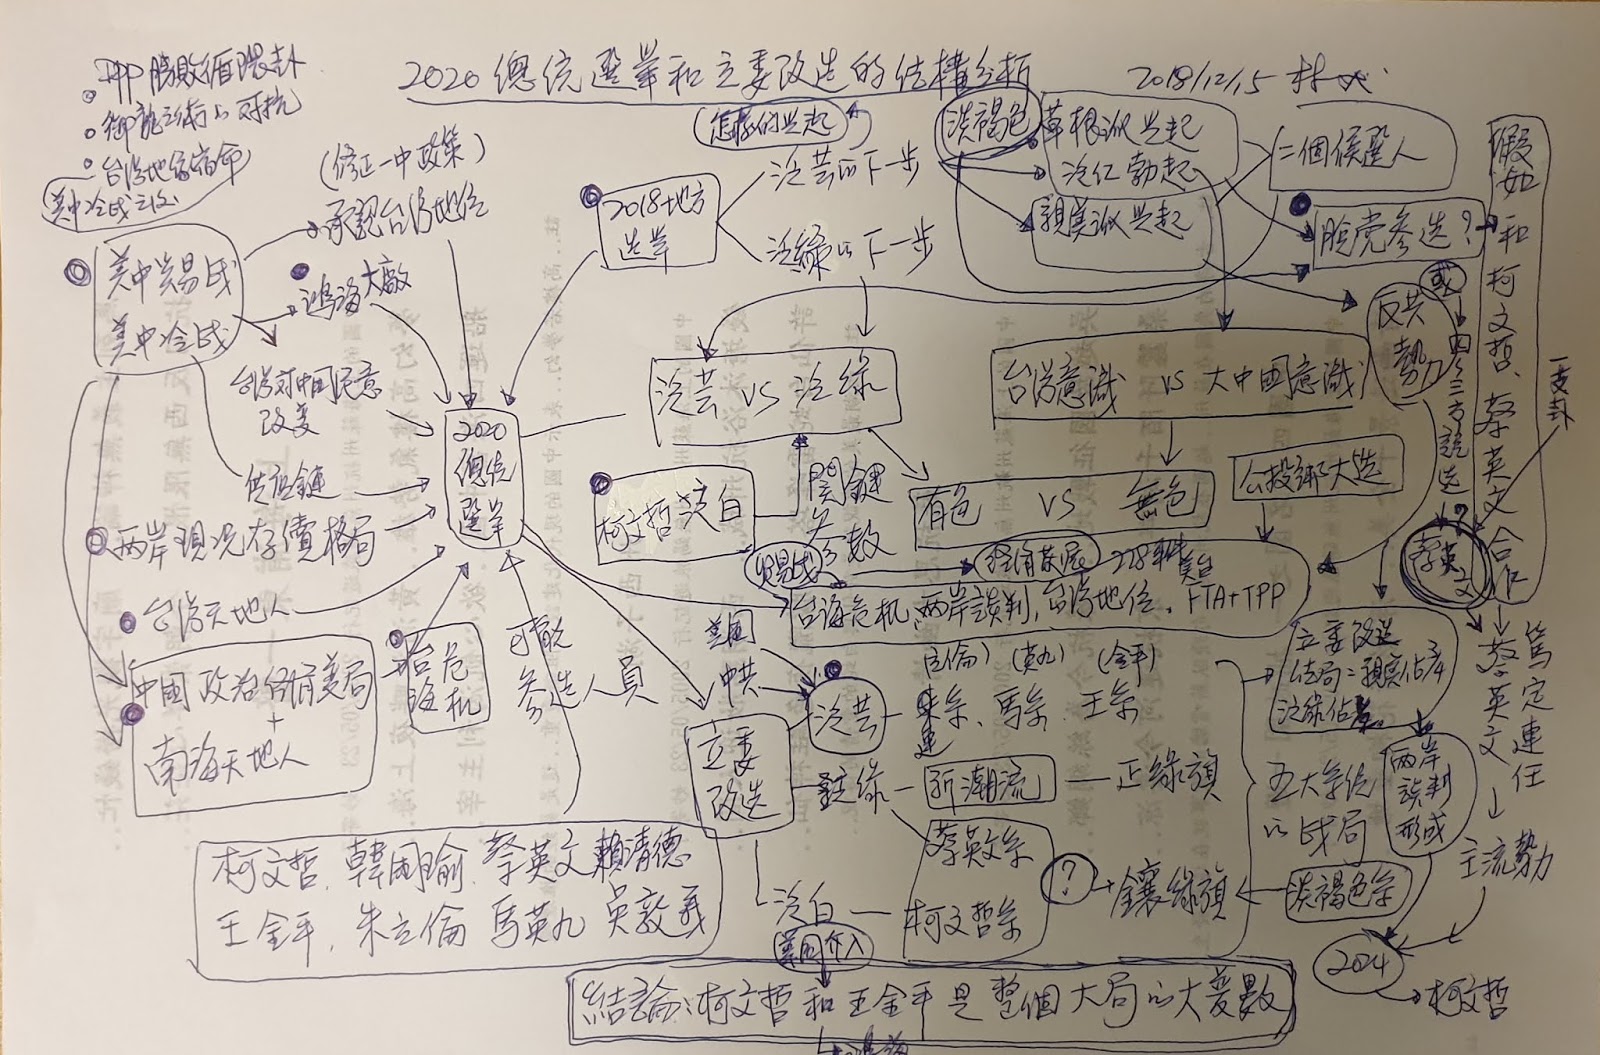 2020總統選舉和立委改造的結構分析
2018/12/15
DPP勝敗循環卦
台灣地緣宿命
美中冷戰
(修正一中政策)
承認台灣地位
美中貿易戰
美中冷戰
鴻海大敵
台灣對中國民意
改變
供應鏈
兩岸現況存續格局
台灣天地人
中國政治
+
南海天地人
台海危機
2020
總統
選舉
可能
參選人員
柯文哲、韓國瑜、蔡英文、賴清德
王金平、朱立倫、馬英九、吳敦義
2018地方
選舉
(怎樣的興起)
泛藍的下一步
泛綠的下一步
淡褐色
草根派興起
泛仁勃起
親美派興起
二個候選人
脫党參選?
反共
勢力
或
四分三方競選
假如和柯文哲、蔡英文合作
一支卦
泛藍 VS 泛綠
台灣意識 vs 大中國意識
柯文哲泛白
關鍵
參數
有色 VS 無色
公投綁大選
貿易戰
經濟發展
228事件
台海危機、兩岸談判、台灣地位、FTA+TPP
美國
中共
(立倫) (英九) (金平)
立委
改造
泛藍
朱系、馬系、王系
連
新潮流
正綠旗
蔡英文系
柯文哲系
泛白
?
鑲綠旗
淡褐色系
立委改造
結局:親美佔3/4
泛綠佔
五大系統
的戰局
兩岸
談判
形成
蔡英文
篤定連任
主流勢力
2024
柯文哲
美國介入
結論:柯文哲和王金平是整個大局的大變數